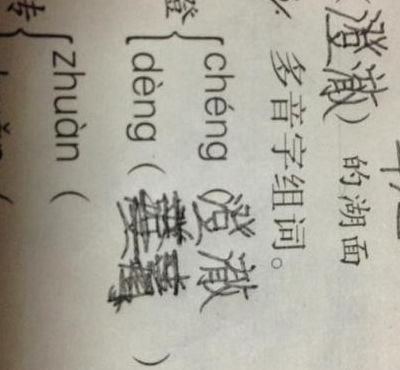 (澄澈) 的湖面
多音字组词。
chéng (澄澈
澄
dèng ( )
zhuàn (